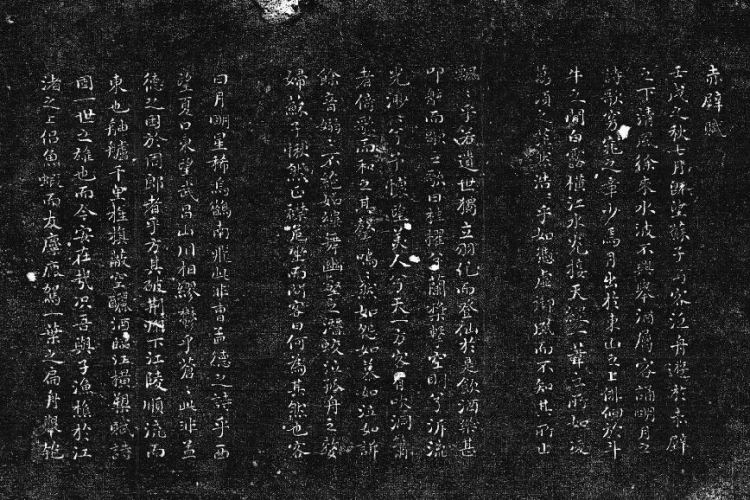 赤壁賦
壬戌之秋七月既望蘇子與客泛舟遊於赤壁
之下清風徐來水波不興舉酒屬客誦明月之
詩歌窈窕之章少焉月出於東山之上徘徊於斗
牛之間白露橫江水光接天縱一葦之所如凌
萬頃之茫然浩浩乎如憑虛御風而不知其所止
飄飄乎如遺世獨立羽化而登仙於是飲酒樂甚
叩舷而歌之歌曰桂櫂兮蘭槳擊空明兮泝流
光渺渺兮予懷望美人兮天一方客有吹洞簫
者倚歌而和之其聲嗚嗚然如怨如慕如泣如訴
餘音嫋嫋不絕如縷舞幽壑之潛蛟泣孤舟之嫠
婦蘇子愀然正襟危坐而問客曰何為其然也客
曰月明星稀烏鵲南飛此非曹孟德之詩乎西
望夏口東望武昌山川相繆鬱乎蒼蒼此非孟
德之困於周郎者乎方其破荊州下江陵順流而
東也舳艫千里旌旗蔽空釃酒臨江橫槊賦詩
固一世之雄也而今安在哉況吾與子漁樵於江
渚之上侶魚蝦而友麋鹿駕一葉之扁舟舉匏